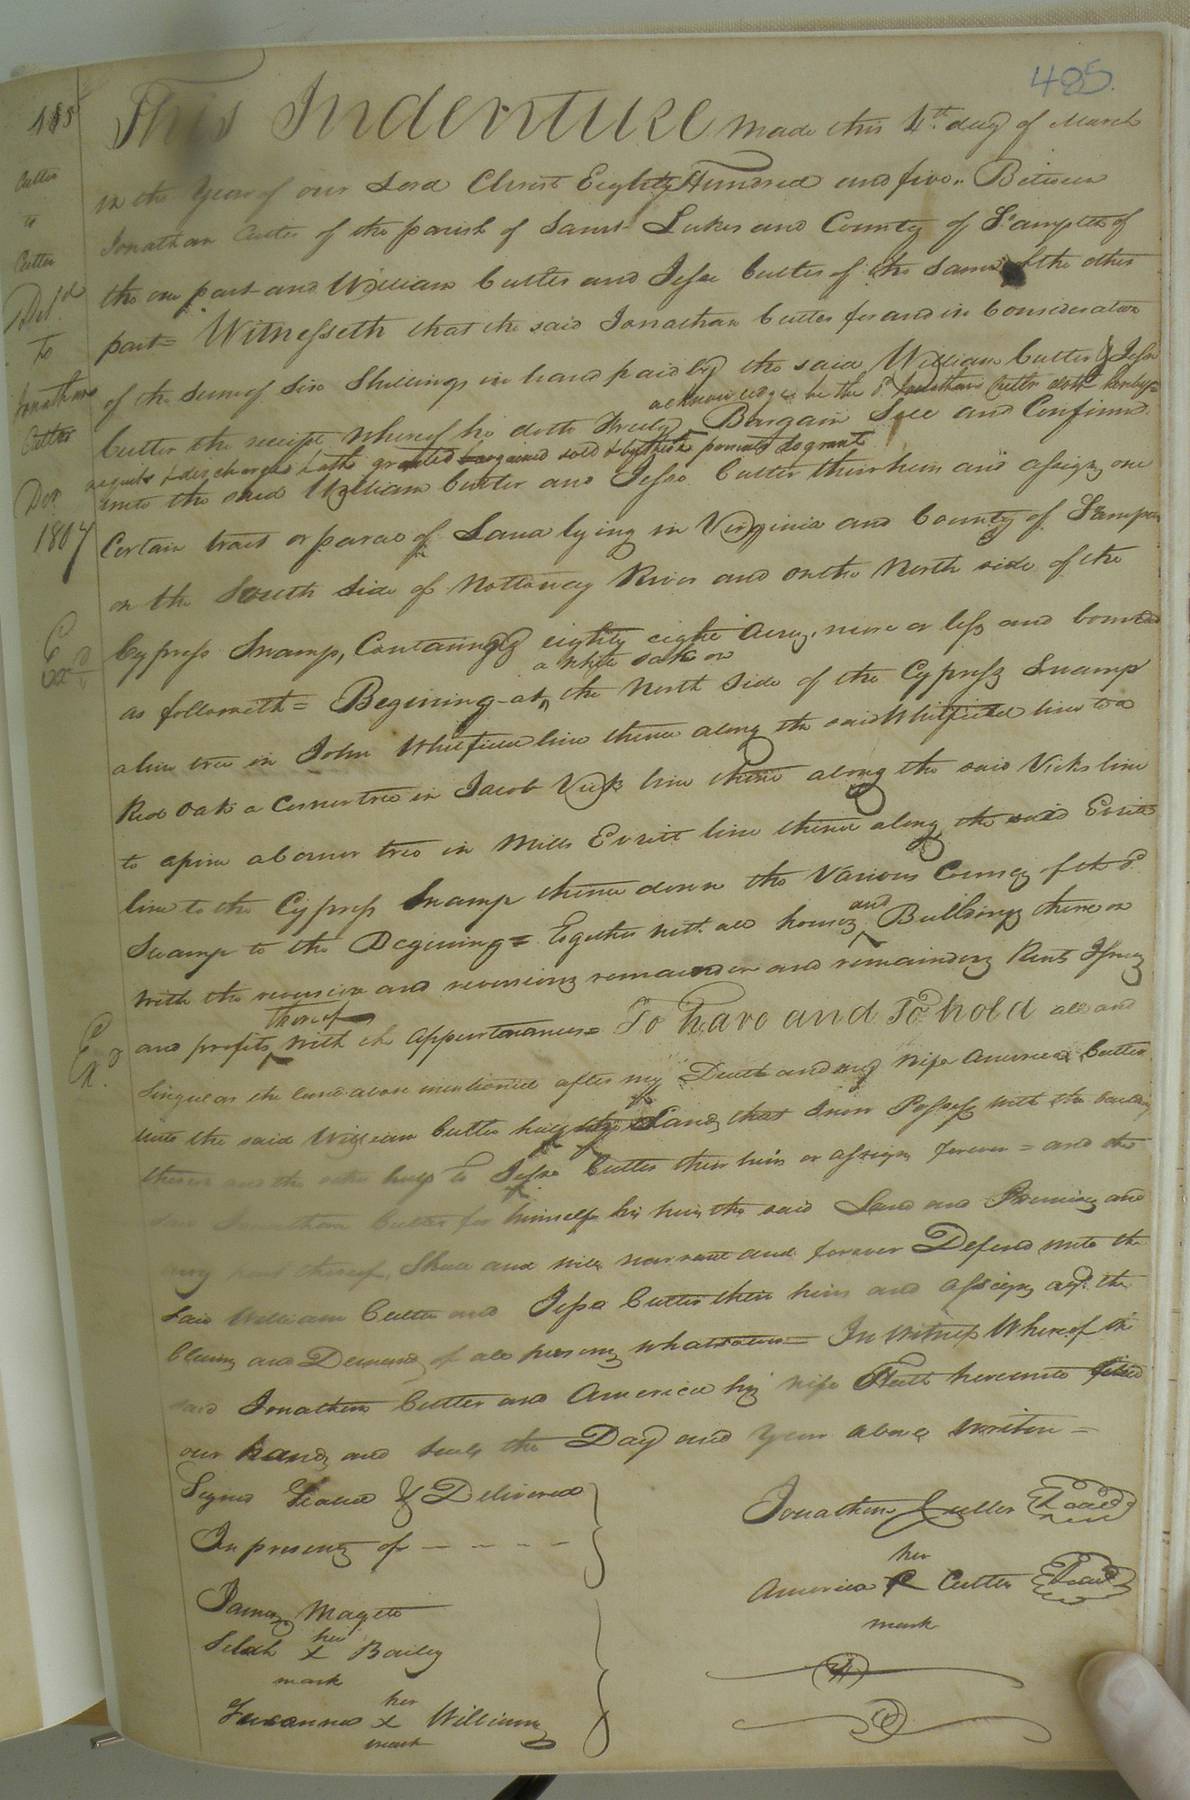 485.
This Indenture made this 4th day of March
in the Year of our Lord Christ Eighty Hundred and five. Between
Jonathan Cutler of the parish of Saint Lukes and County of S°ampton of
the one part and William Cutler and Jesse Cutler of the Same of the other
part = Witnesseth that the said Jonathan Cutler for and in Consideration
of the sum of Six Shillings in hand paid by the said William Cutler & Jesse
acknowledge, he the sd. Jonathan Cutler doth hereby
Cutler the receipt Whereof he doth Freely Bargain Sell and Confirm
acquit & discharged hath granted bargained sold & by these presents do grant
unto the said William Cutler and Jesse Cutler their heirs and assigns one
Certain tract or parcel of Land lying in Virginia and County of S°ampton
on the South Side of Nottoway River and on the North side of the
Cypress Swamp, Containing eighty eight Acres, more or less and bounded
a white oak on
as followeth = Begining at the North Side of the Cypress Swamp
a line tree in John Whitfield line thence along the said Whitfield line to a
Red Oak a Corner tree in Jacob Vick line thence along the said Vicks line
to a pine a Corner tree in Mills Evritt line thence along the said Evritt
line to the Cypress Swamp thence down the Various Courses of the sd.
Swamp to the Begining = Together with all houses and Buildings there on
With the reversion and reversions remainder and remainders Rents Issues
thereof
and profits, With th appurtenances = To have and To hold all and
Singular the land above mentioned after my Death and my wife America Cutler
unto the said William Cutler half the Land, that I now Possess with the building
thereon and the other half to Jesse Cutler their heirs or assigns forever = and the
said Jonathan Cutler for himself his heirs the said Land and Premises and
any part thereof, Shall and will warrant and forever Defend unto the
Said William Cutler and Jesse Cutler their heirs and assigns agt. the
Claims and Demands of all persons whatsoever = In Witness Whereof the
said Jonathan Cutler and America his wife Hath hereunto
our hands and Seals the Day and Year above written =
Signed Sealed & Delivered
In presents of - - - - -
Jonathan Cutler Seal
her
America Cutler Seal
mark
James Magett
her
Selah x Bailey
mark
her
Susanna x Williams
mark
Cutler
to
Cutler
Deld
To
Jonathan
Cutler
Der
1807
Exd
Exd